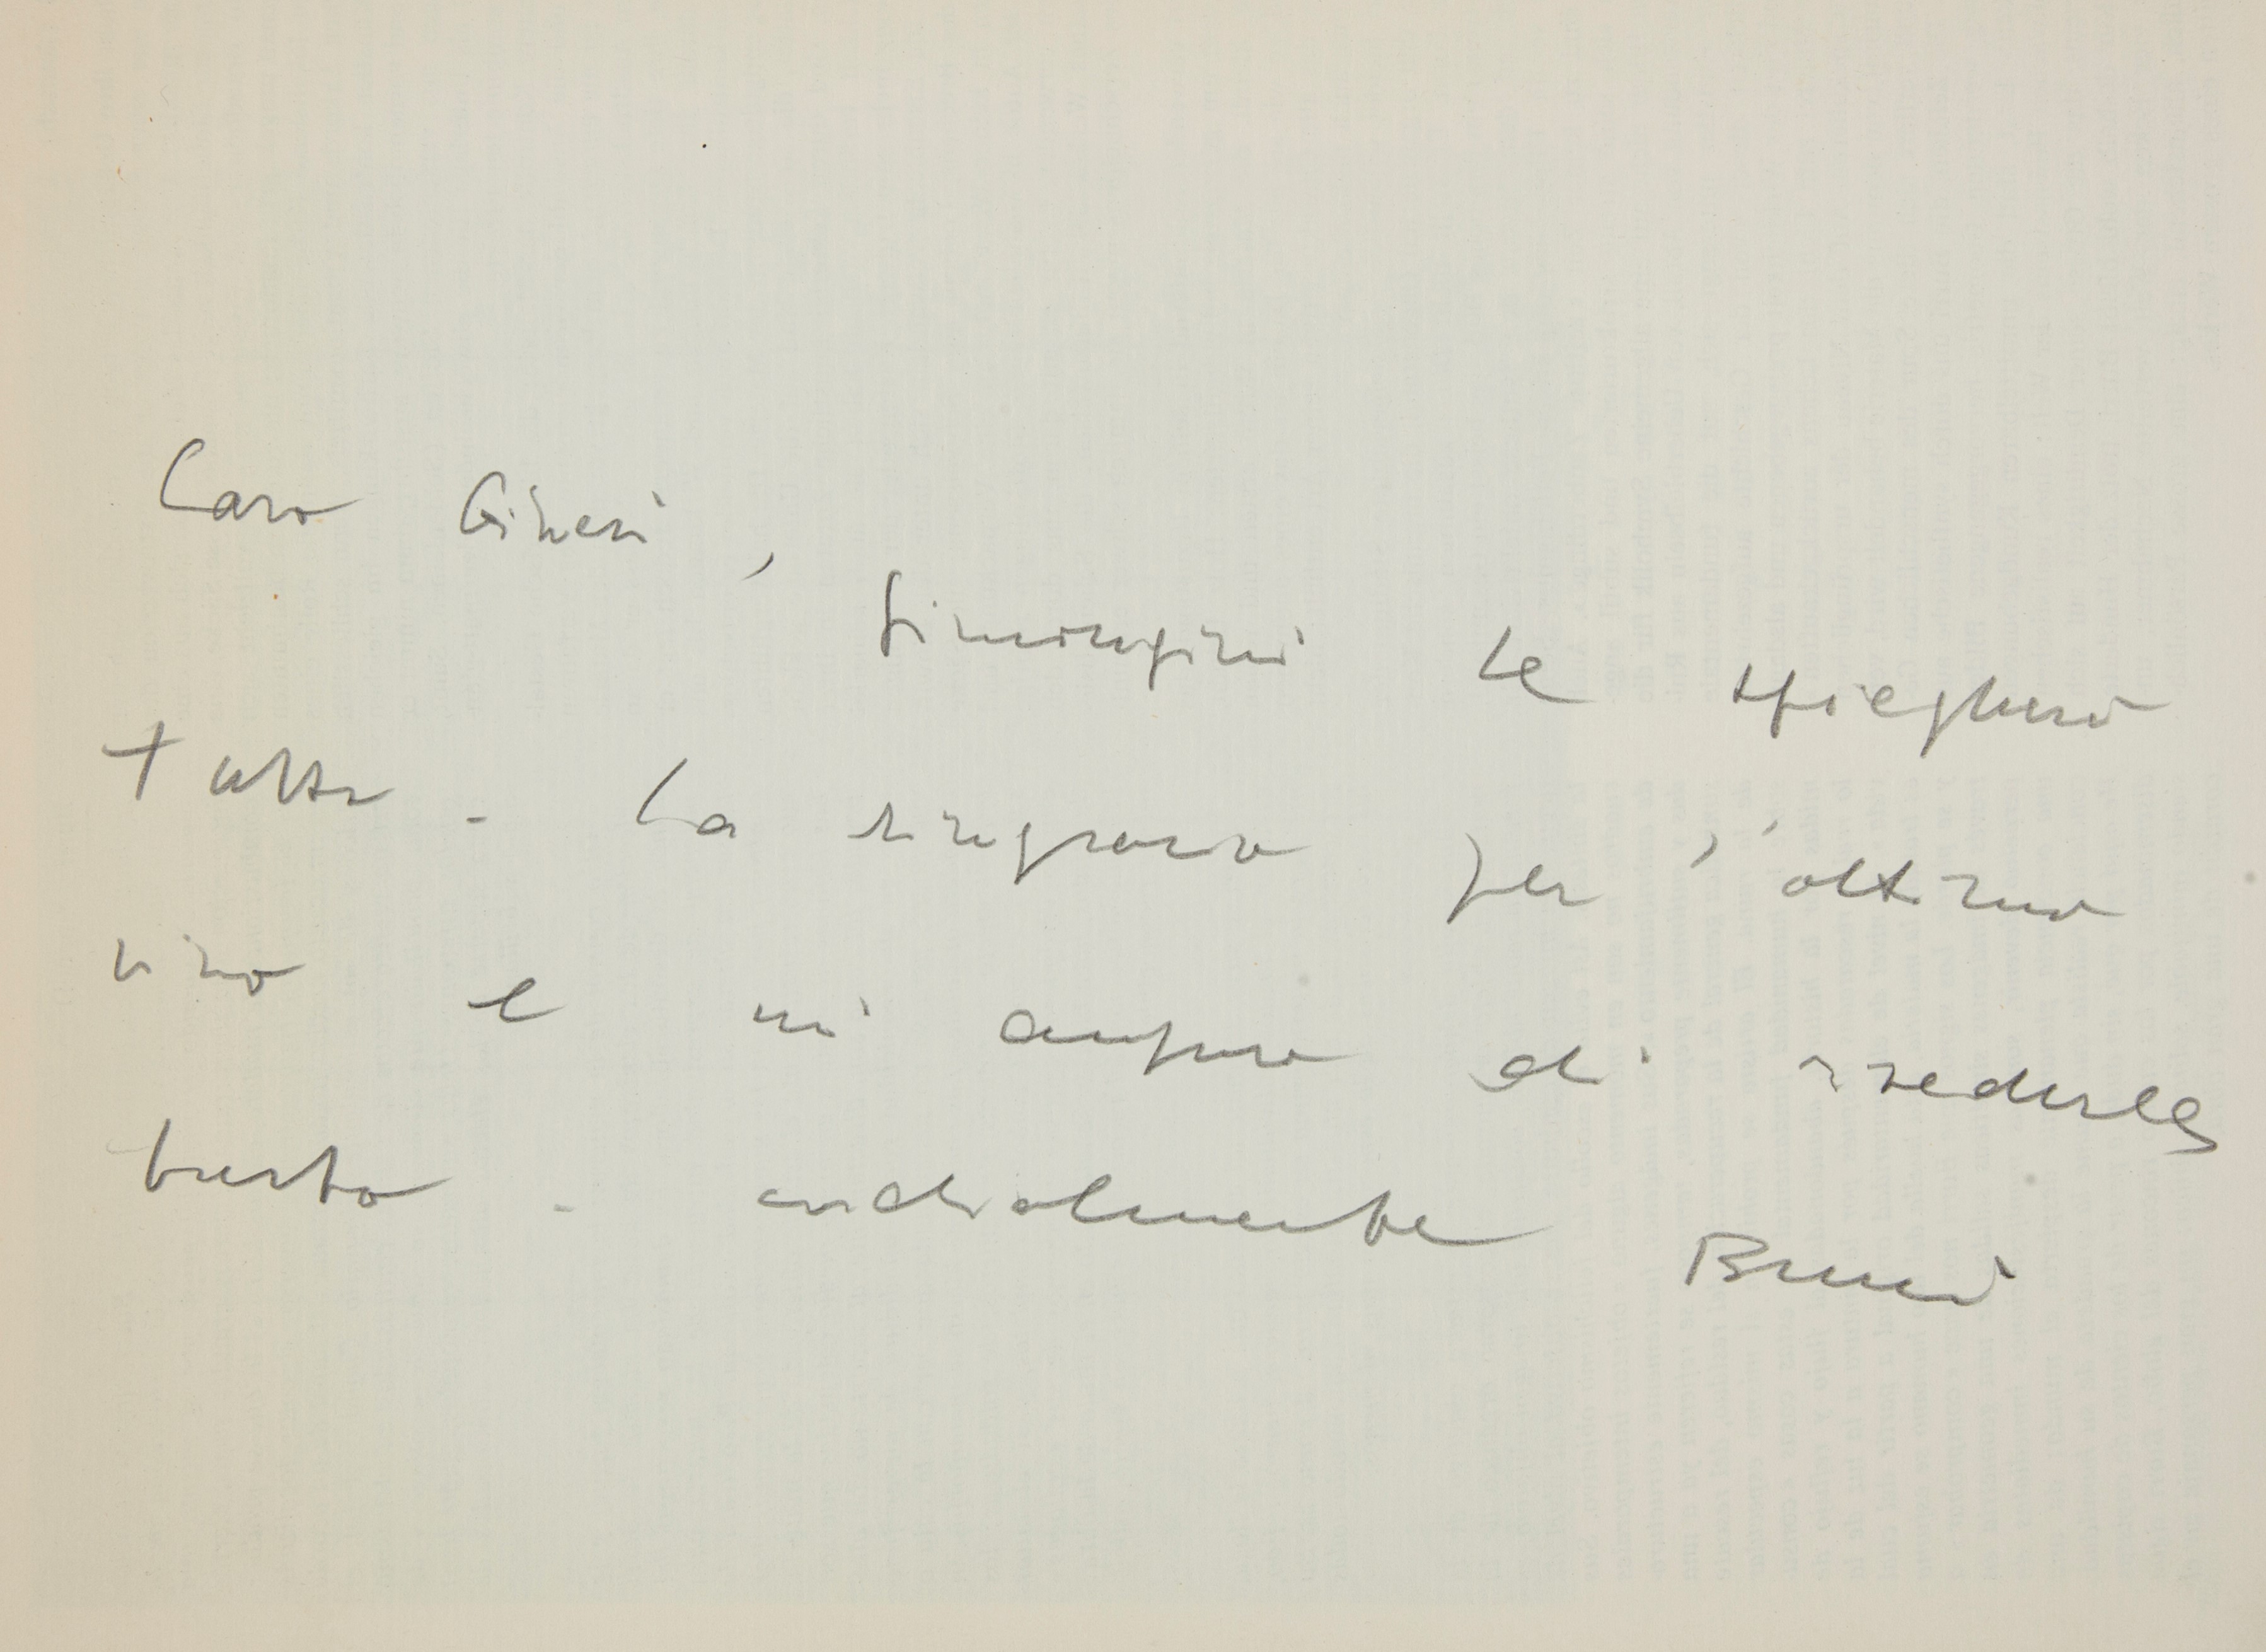 Caro Gineri,
Simongini le spiegherà
tutto - La ringrazio per l'ottimo
vino e mi auguro di rivederla
presto - cordialmente Burri